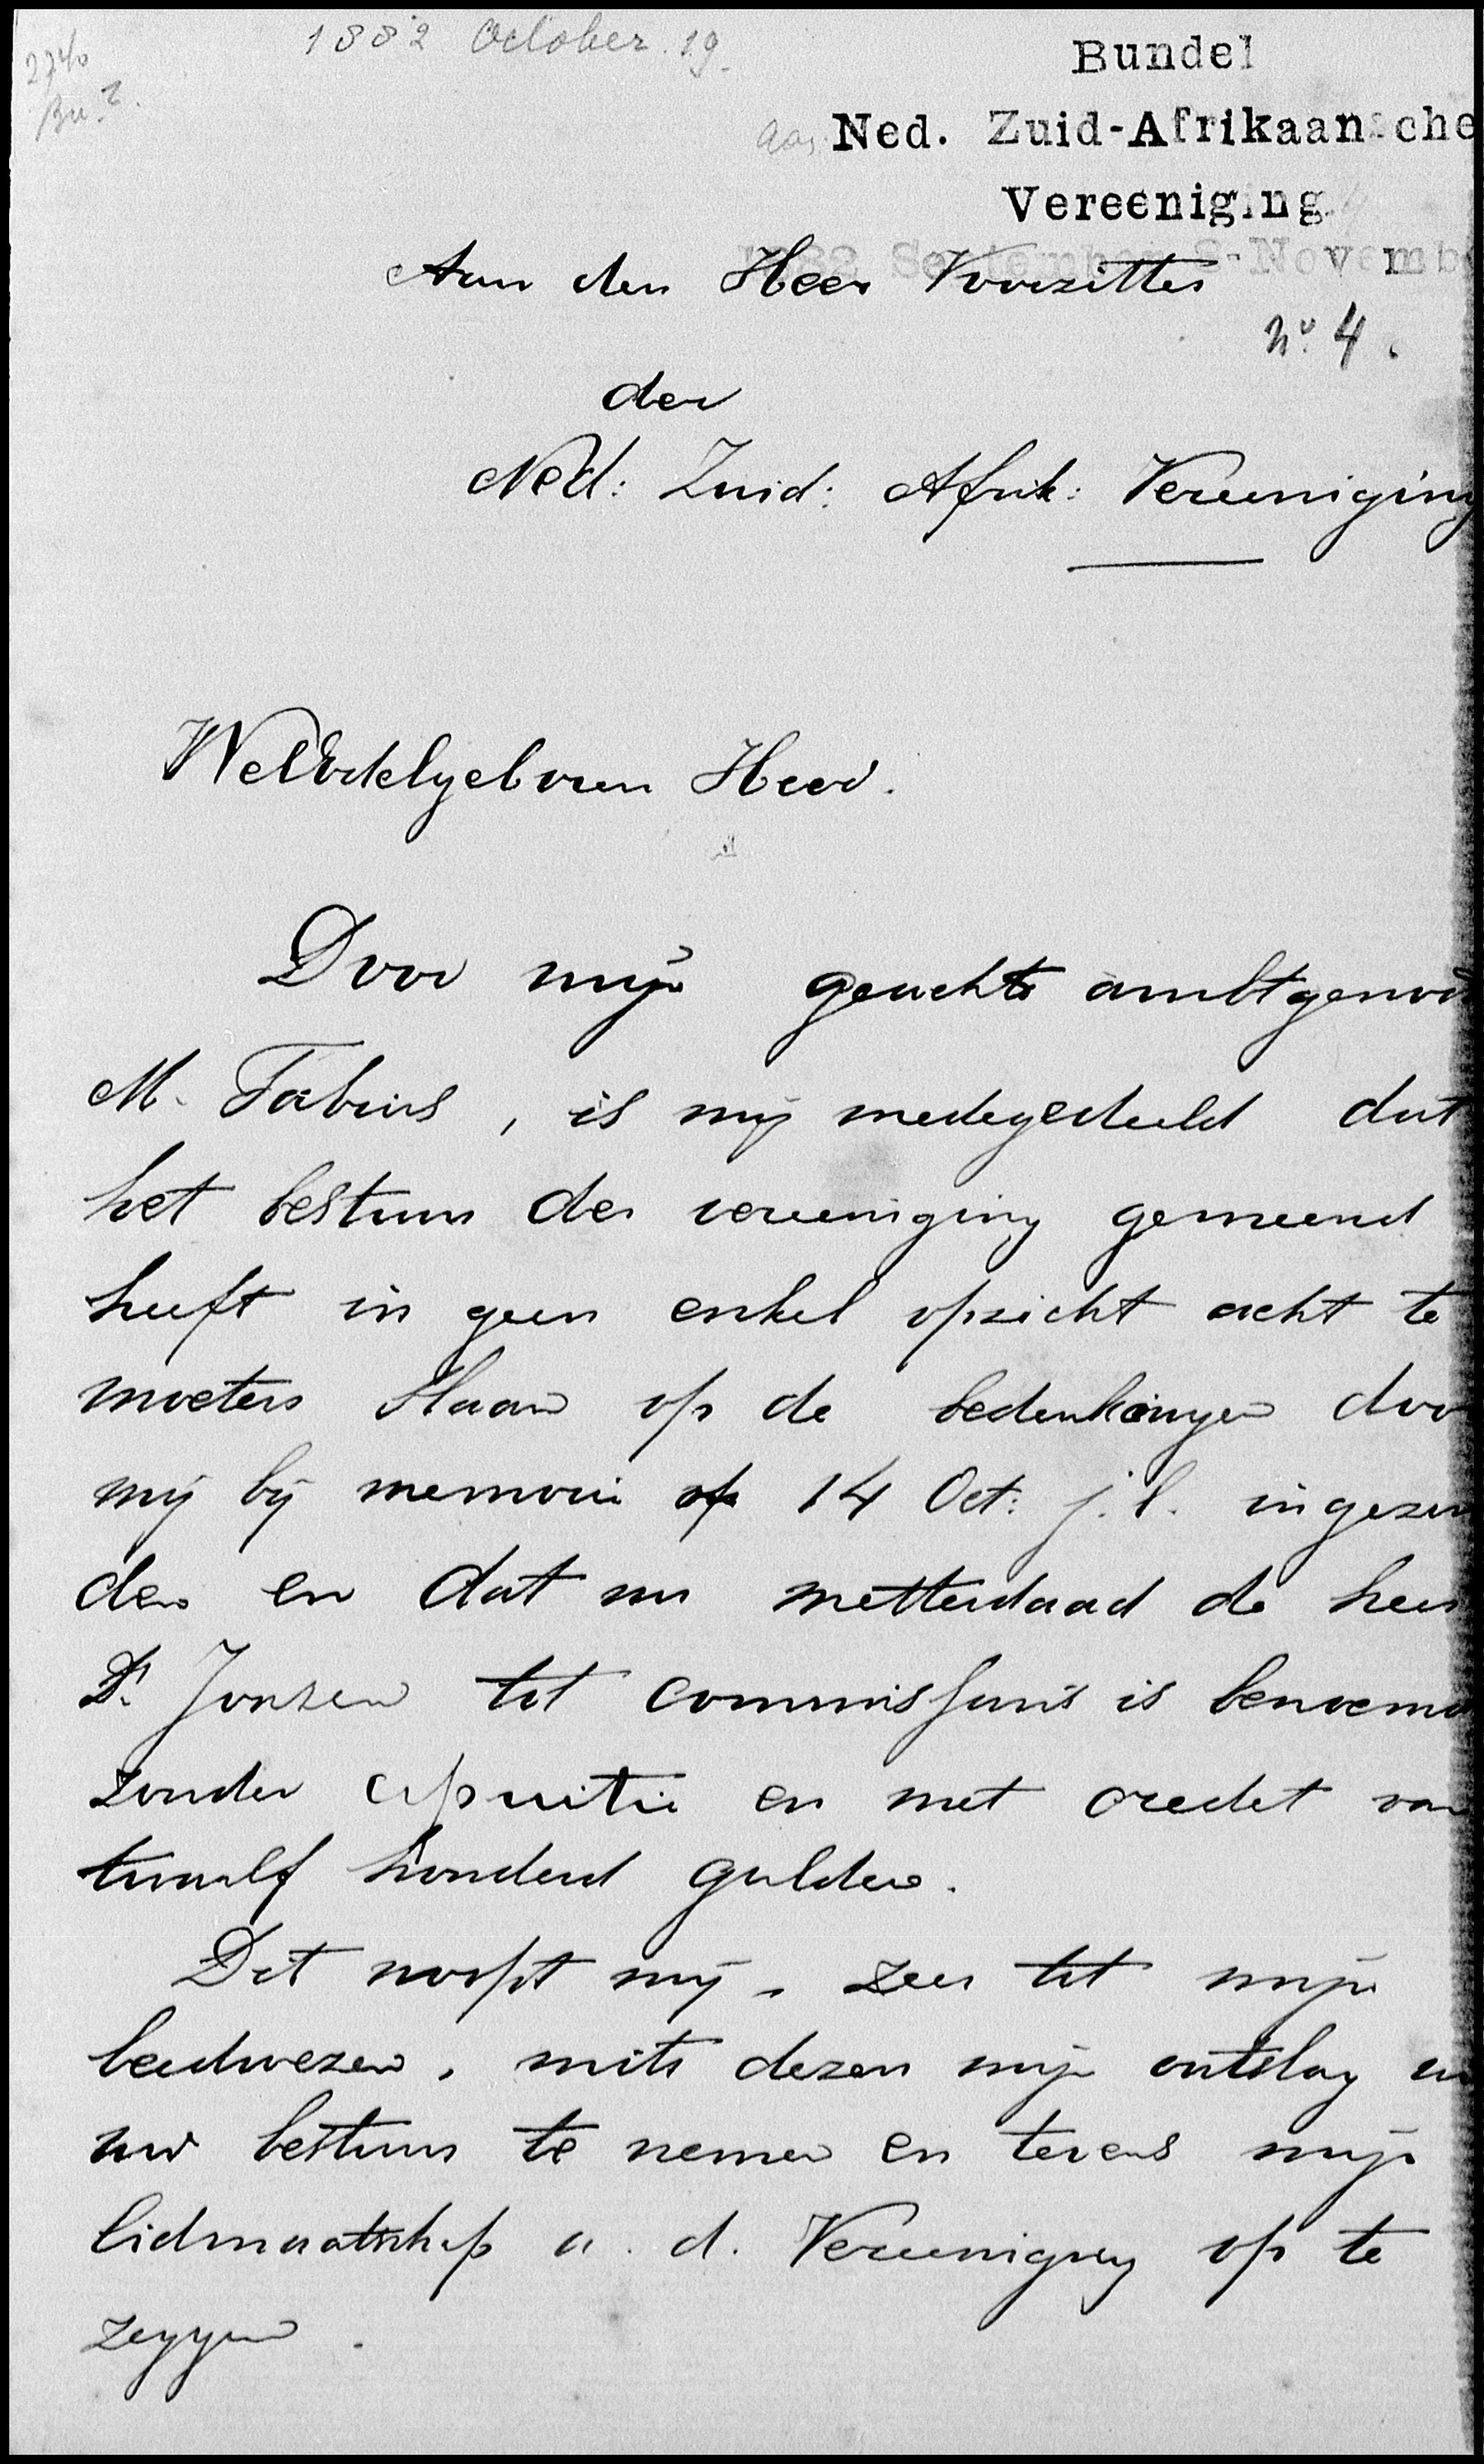 1882 October 19.
2740
Bundel
Ned. Zuid-Afrikaansche
Vereeniging
1882 September 2-Novemb
Aan den Heer Voorzitter
No 4.
der
Ned: Zuid: Afrik: Vereeniging
WelEdelgeboren Heer.
Door mijn geachte ambtgenoo
M. Fabius, is mij medegedeeld dat
het bestuur der vereeniging gemeend
heeft in geen enkel opzicht acht te
moeten slaan op de bedenkingen door
mij bij memorie op 14 Oct: j.l. ingezon
den en dat nu metterdaad de heer
Dr. Jonsen tot commissaris is benoemd
zonder en met crediet van
twaalf honderd gulden.
Dit noopt mij, zeer tot mijn
leedwezen, mits dezen mijn ontslag
uw bestuur te nemen en tevens mijn
lidmaatschap a. d. Vereeniging op te
zeggen.